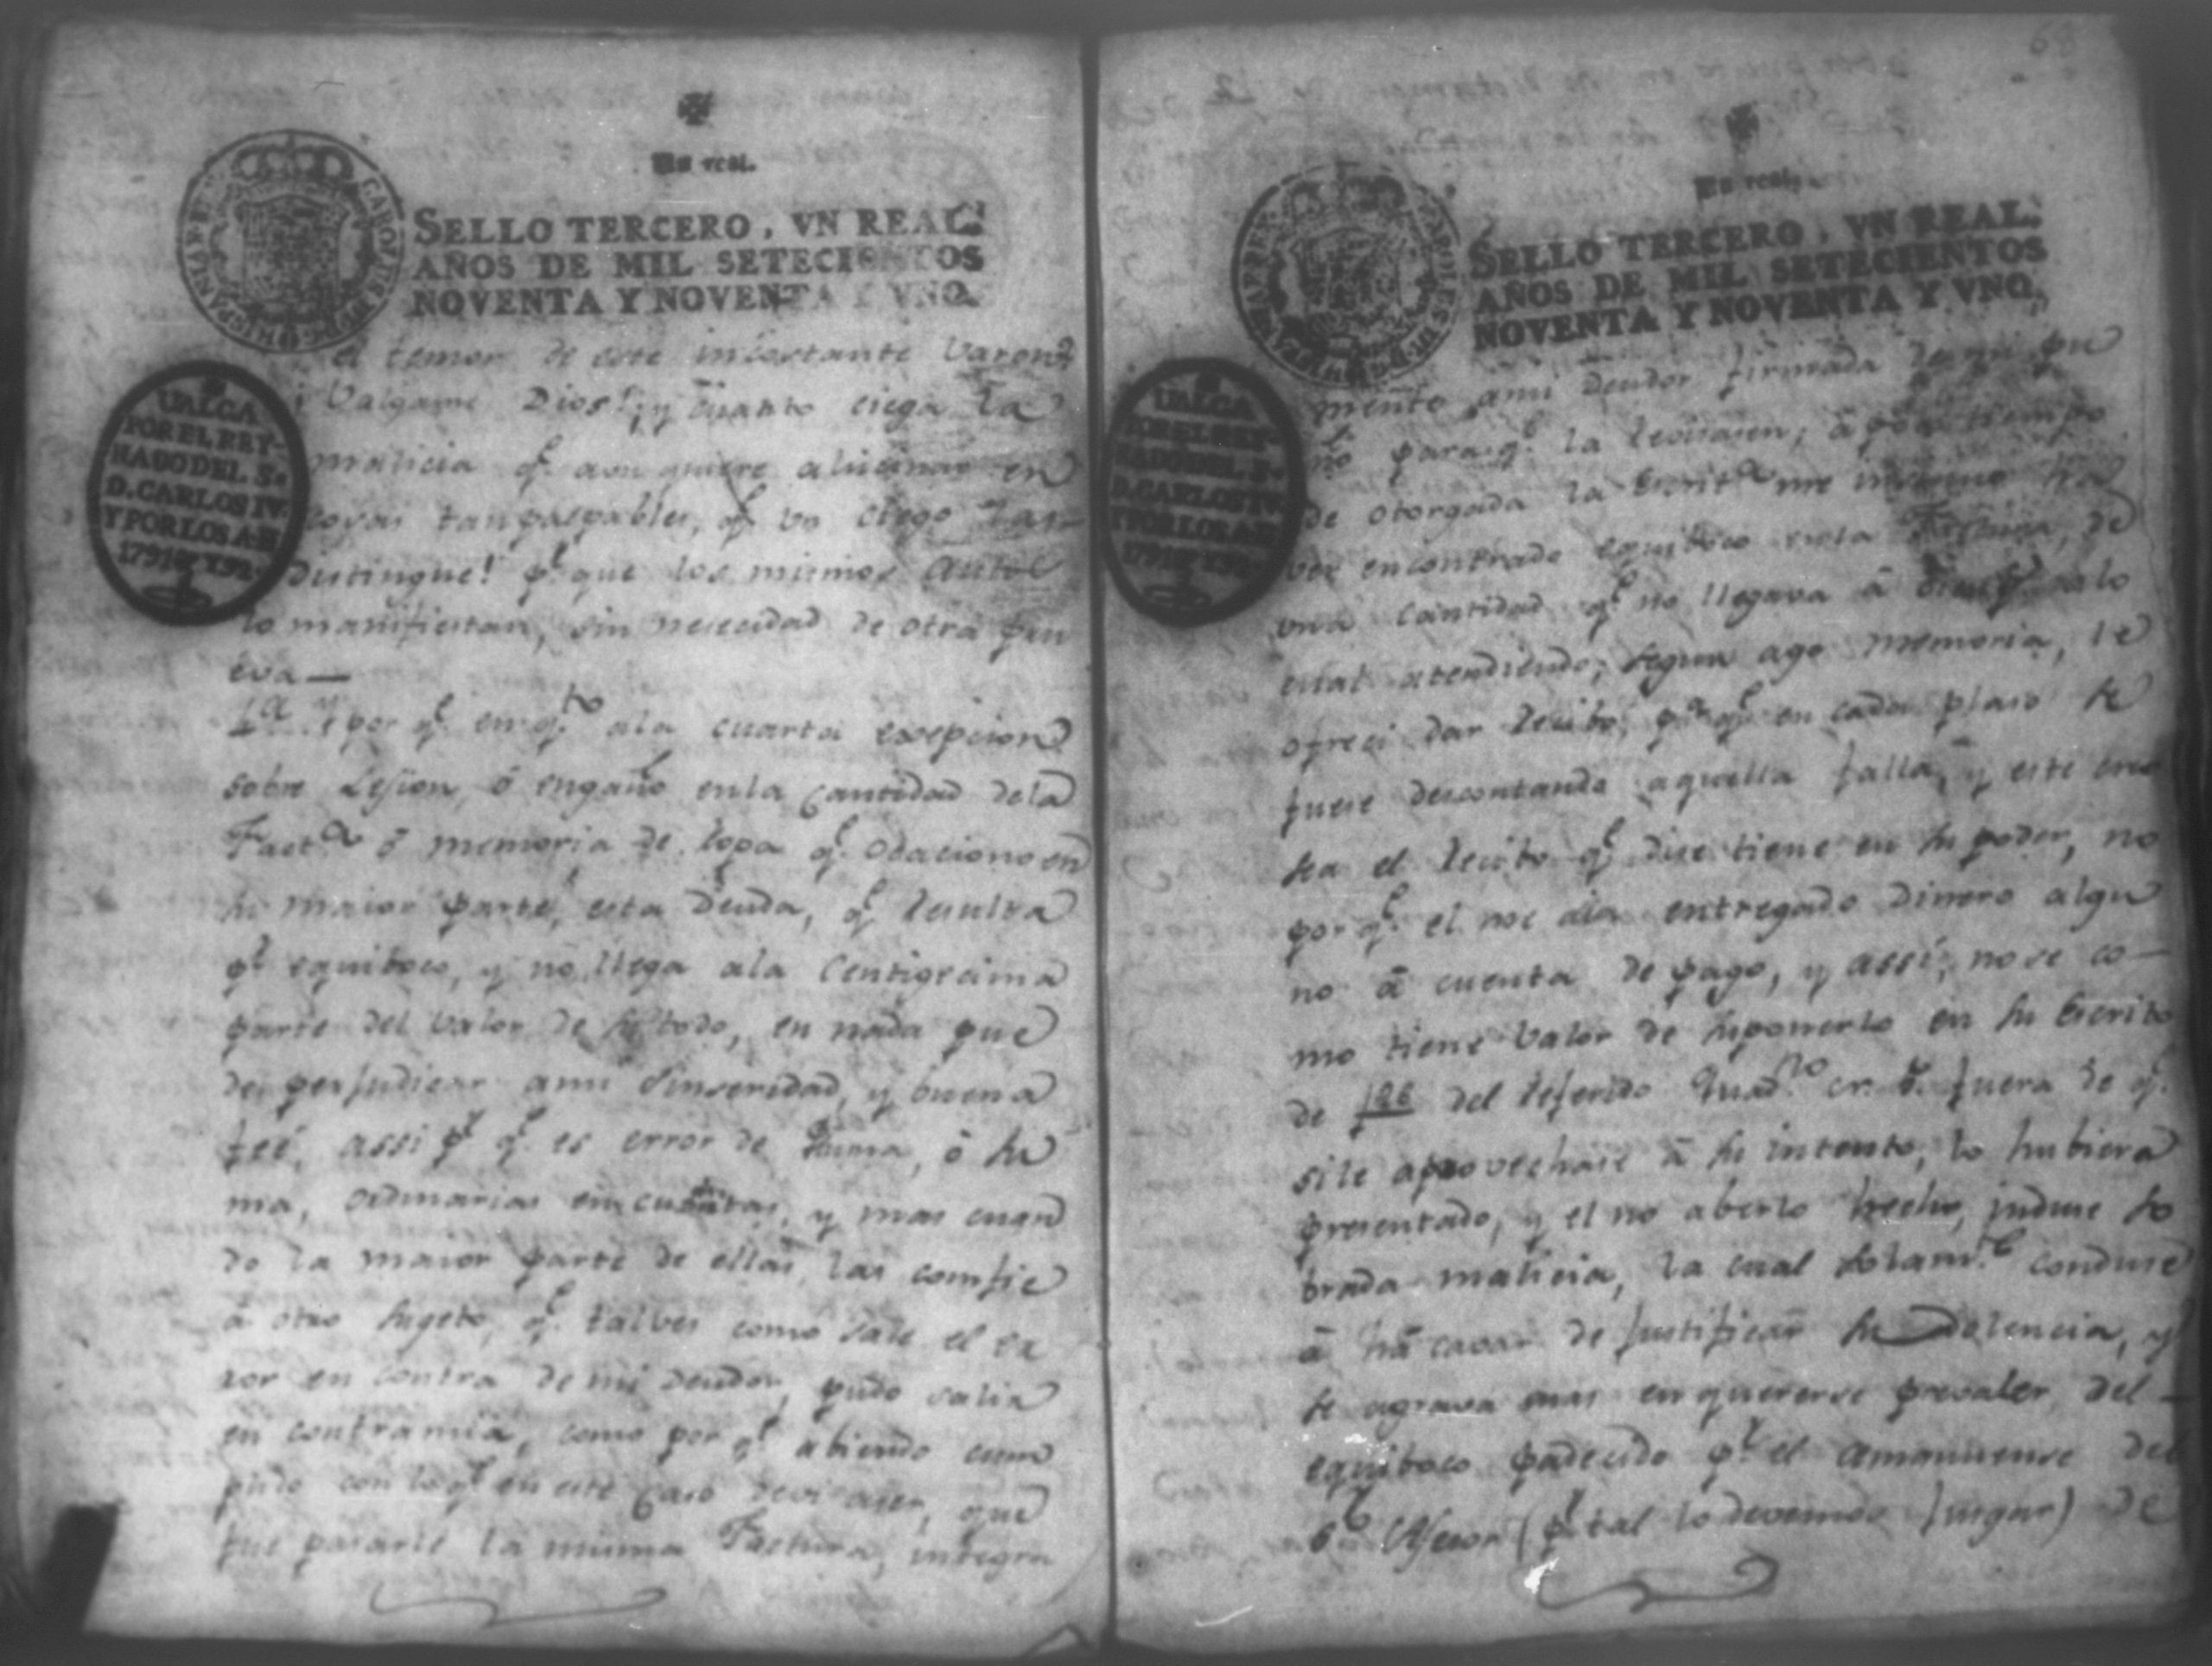 Un real.
SELLO TERCERO, VN REAL
AÑOS DE MIL SETECIENTOS
NOVENTA Y NOVENTA Y VNO.
CAROLUS IV D G HISPAN REX
VALGA
POR EL REY-
NADO DEL S.
D. CARLOS IV.
Y POR LOS A. D.
1791 Y 92
el temor de este incostante Varon?
¡Valgame Dios! y cuanto ciega la
malicia q.e aun quiere alucinar en
cosas tan palpables, q.e un ciego las
distingue! p.r que los mismos autos
lo manifiestan, sin nesecidad de otra pru
eva—
4.a Y por q.e en q.to ala cuarta exsepcion
sobre Lesion, ó engaño enla Cantidad dela
Fact.a ó memoria de ropa q.e ocaciono en
su maior parte, esta deuda, q.e resulta
p.r equiboco, y no llega ala Centigecima
parte del valor de su todo, en nada pue
de perjudicar ami sinseridad, y buena
feé, assi p.r q.e es error de Pluma, ó su
ma, ordinarias en cuentas, y mas cuan
do la maior parte de ellas las confie
á otro sugeto, q.e talves como sale el er
ror en contra de mi deudor, pudo salir
en contra mia, como por q.e abiendo cum
plido con lo q.e en este Caso devi aser, que
fue pasarle la misma Factura, integra
68
Un real.
SELLO TERCERO, VN REAL.
AÑOS DE MIL SETECIENTOS
NOVENTA Y NOVENTA Y VNO.
VALGA
POR EL REY-
NADO DEL S.
D. CARLOS IV.
Y POR LOS A. D.
1791 Y 92
mente ami Deudor firmada de mi pu
ño para q.e la revisasen, á poco tiempo
de otorgada la Escrit.a me intimo ha
ver encontrado equiboco enla Factura, de
una Cantidad q.e no llegava á alo
cual atendiendo, segun ago memoria, le
ofreci dar recibo, p.a q.e en cada plaso se
fuese descontando aquella falla, y este creo
sea el recibo q.e dise tiene en su poder, no
por q.e el me aia entregado dinero algu
no á cuenta de pago, y assi, no se co—
mo tiene valor de suponerlo en su Escrito
de f 26 del referido Quad.no cr. fuera de q.e
si le aprovechase á su intento, lo hubiera
presentado, y el no aberlo hecho, induse so
brada malicia, la cual solam.te conduse
á ha cavar de justificar su Dolencia, y
se agrava mas en quererse prevaler del—
equiboco padecido p.r el amanuense del
S.or Asesor (p.r tal lo devemos jusgar) de